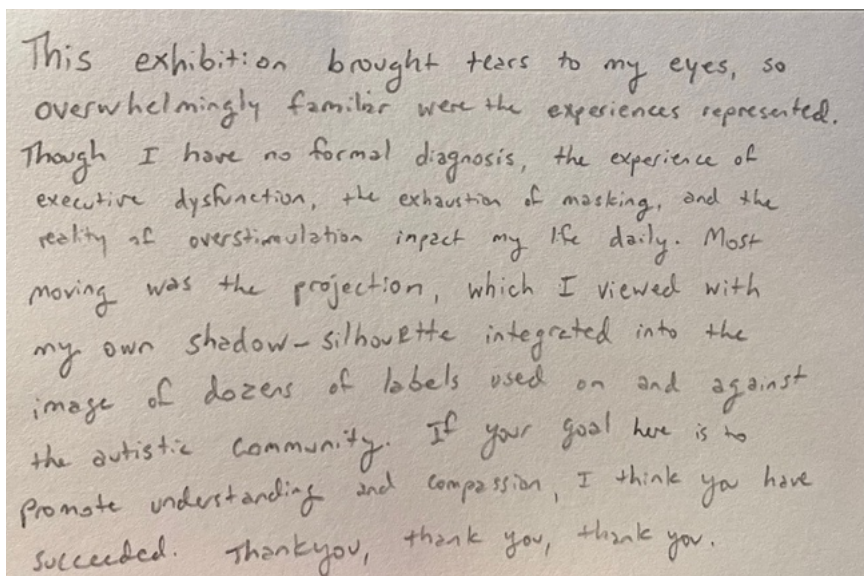 This exhibition brought tears to my eyes, so
overwhelmingly familiar were the experiences represented.
Though I have no formal diagnosis, the experience of
executive dysfunction, the exhaustion of masking, and the
reality of overstimulation inpact my life daily. Most
moving was the projection, which I viewed with
my own shadow-silhouette integrated into the
image of dozens of labels used on and against
the autistic community. If your goal here is to
promote understanding and compassion, I think you have
succeeded. Thankyou, thank you, thank you.